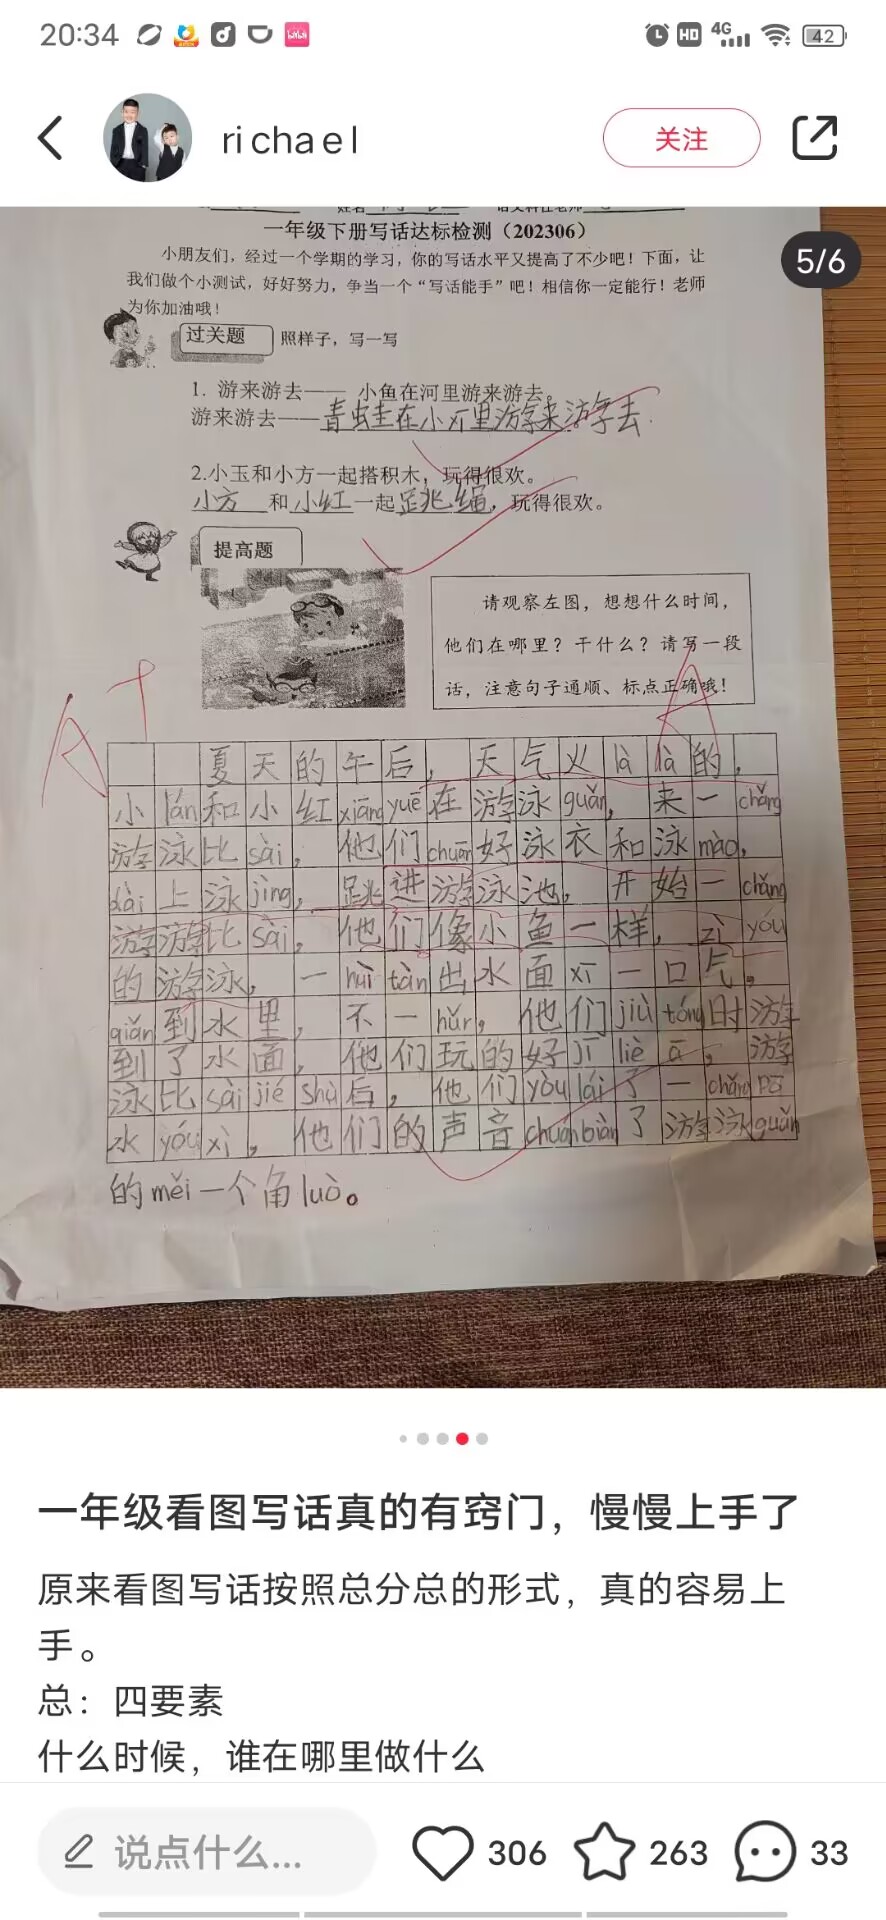 20:34
HD 4G 42
richael
关注
5/6
一年级下册写话达标检测（202306）
小朋友们，经过一个学期的学习，你的写话水平又提高了不少吧！下面，让
我们做个小测试，好好努力，争当一个“写话能手”吧！相信你一定能行！老师
为你加油哦！
过关题 照样子，写一写
1. 游来游去—— 小鱼在河里游来游去。
游来游去——青蛙在小河里游来游去.
2.小玉和小方一起搭积木，玩得很欢。
小方 和 小红 一起 跳绳，玩得很欢。
提高题
请观察左图，想想什么时间，
他们在哪里？干什么？请写一段
话，注意句子通顺、标点正确哦！
A+
夏天的午后，天气火là là的，
小lán和小红xiāng yuē在游泳guǎn，来一chǎng
游泳比sài，他们chuān好泳衣和泳mào，
dài上泳jìng，跳进游泳池，开始一chǎng
游泳比sài，他们像小鱼一样，zì yóu
的游泳，一huì tàn出水面xī一口气，
qián到水里，不一huìr，他们jiù tóng时游
到了水面，他们玩的好jī liè ā，游
泳比sài jié shù后，他们yòu lái了一chǎng pō
水yóu xì，他们的声音chuán biàn了游泳guǎn
的měi一个角luò。
一年级看图写话真的有窍门，慢慢上手了
原来看图写话按照总分总的形式，真的容易上
手。
总：四要素
什么时候，谁在哪里做什么
说点什么...
306
263
33